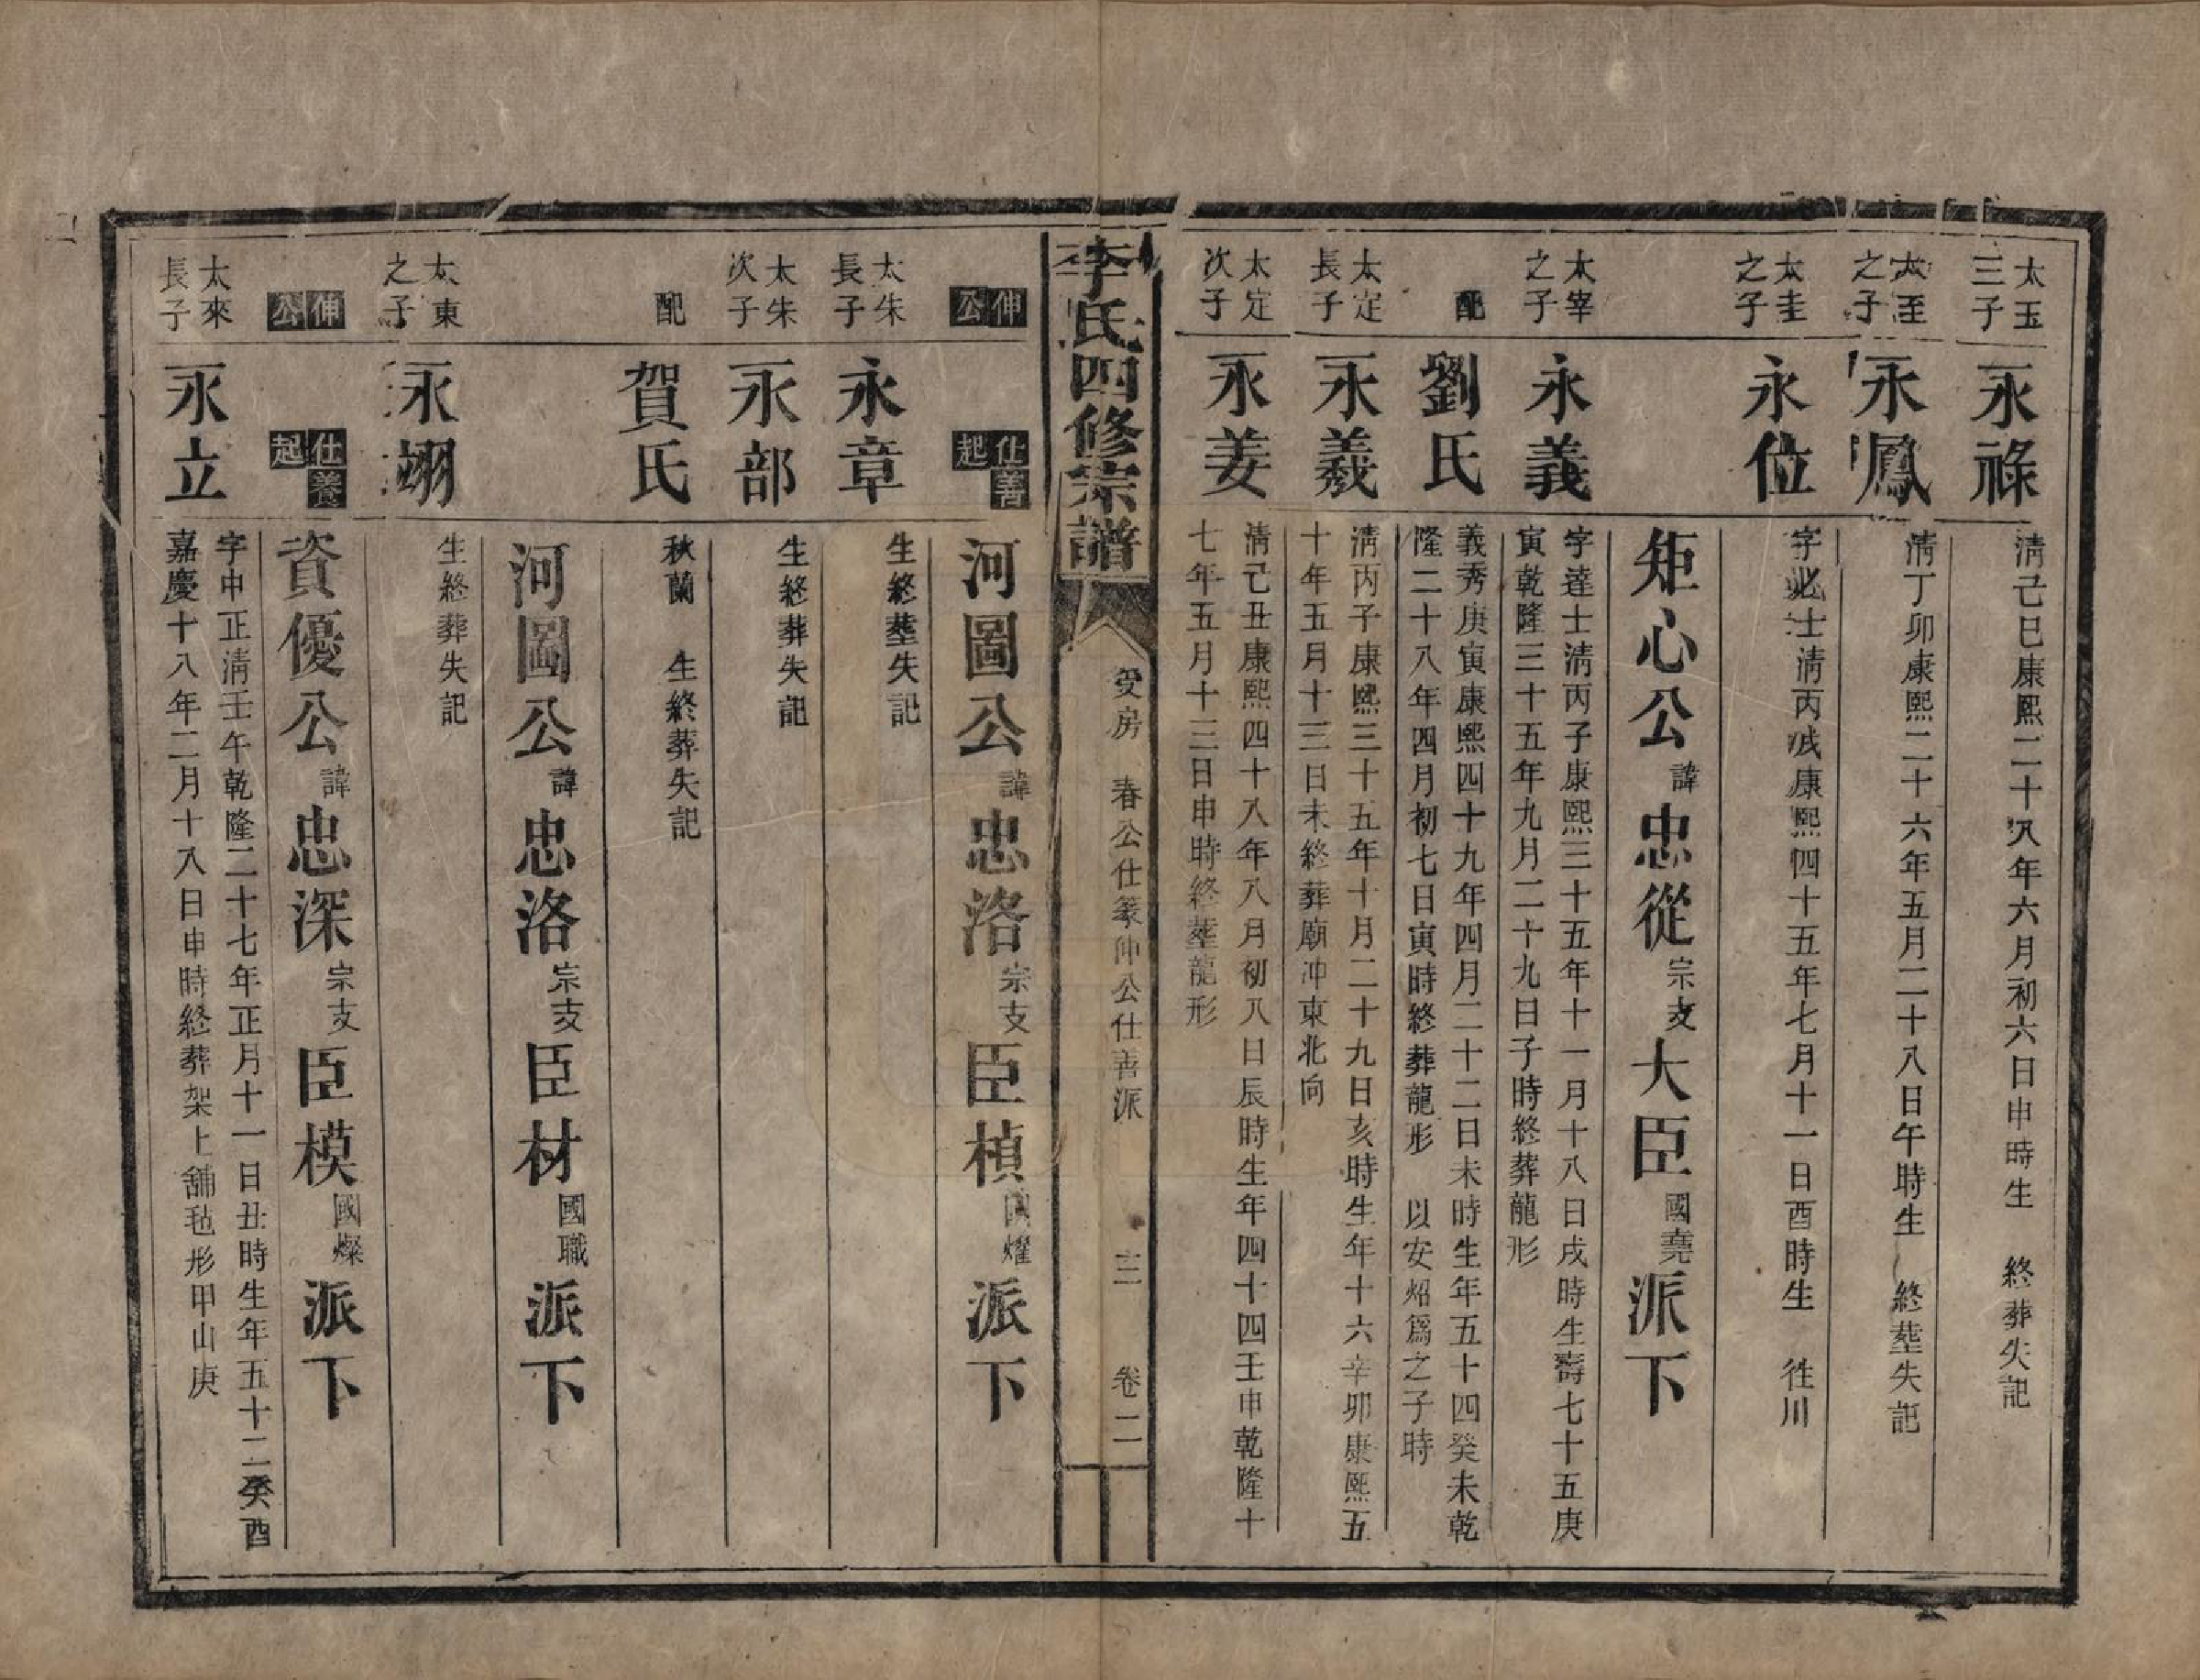 太玉
三子
永祿
清己巳康熙二十八年六月初六日申時生　終葬失記
太至
之子
永鳳
清丁卯康熙二十六年五月二十八日午時生　終塟失記
太圭
之子
永位
字必士清丙戌康熙四十五年七月十一日酉時生　徃川
矩心公諱忠從宗支大臣國堯派下
太宰
之子
永義
字達士清丙子康熙三十五年十一月十八日戌時生壽七十五庚
寅乾隆三十五年九月二十九日子時終葬龍形
配
劉氏
義秀庚寅康熙四十九年四月二十二日未時生年五十四癸未乾
隆二十八年四月初七日寅時終葬龍形　以安炤爲之子時
太定
長子
永羲
清丙子康熙三十五年十月二十九日亥時生年十六辛卯康熙五
十年五月十三日未終葬廟冲東北向
太定
次子
永姜
清己丑康熙四十八年八月初八日辰時生年四十四壬申乾隆十
七年五月十三日申時終塟龍形
李氏四修宗譜
受房　春公仕篆仲公仕善派
三　卷二
伸公
仕善起
河圖公諱忠洛宗支臣楨國燿派下
太朱
長子
永章
生終塟失記
太朱
次子
永部
生終葬失記
配
賀氏
秋蘭　生終葬失記
河圖公諱忠洛宗支臣材國職派下
太東
之子
永翊
生終葬失記
伸公
仕養起
資優公諱忠深宗支臣模國燦派下
太來
長子
永立
字中正清壬午乾隆二十七年正月十一日丑時生年五十二癸酉
嘉慶十八年二月十八日申時終葬架上舖毡形甲山庚